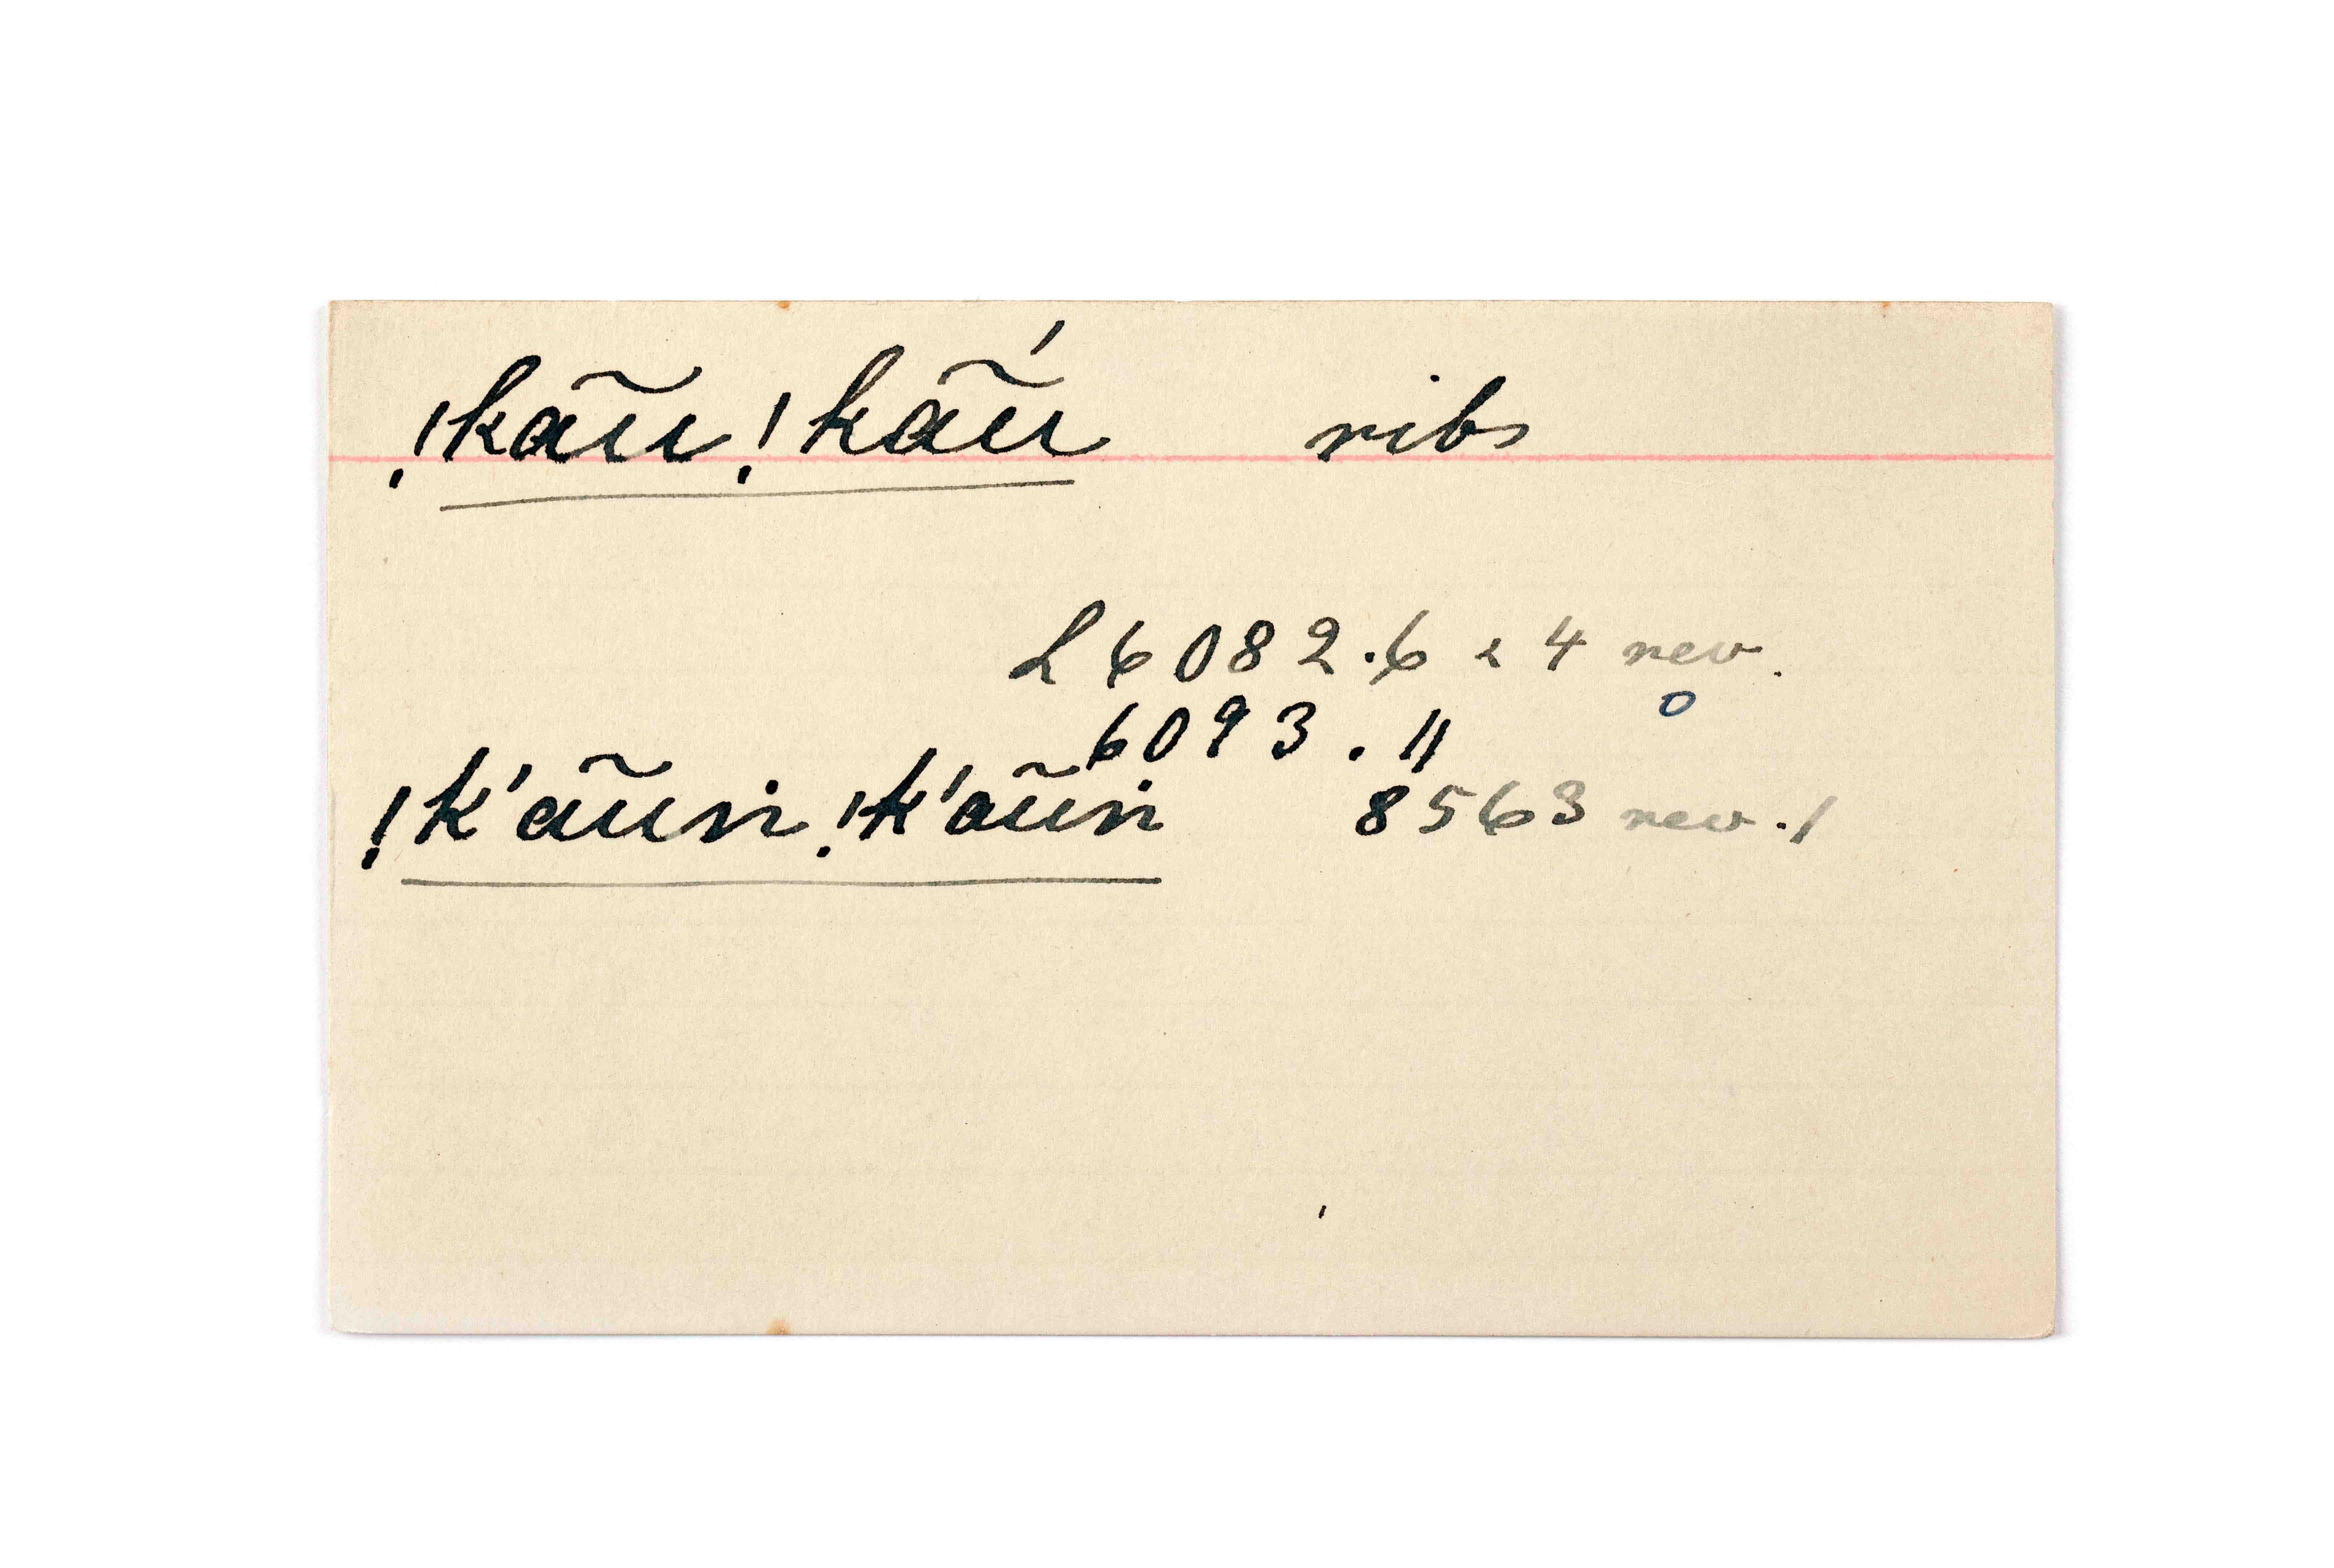 !kãũ!kãṹ ribs
L 6082.6 & 4 rev.
6093.11
!k'ãũṅ!k'ãũṅ 8563 rev.1